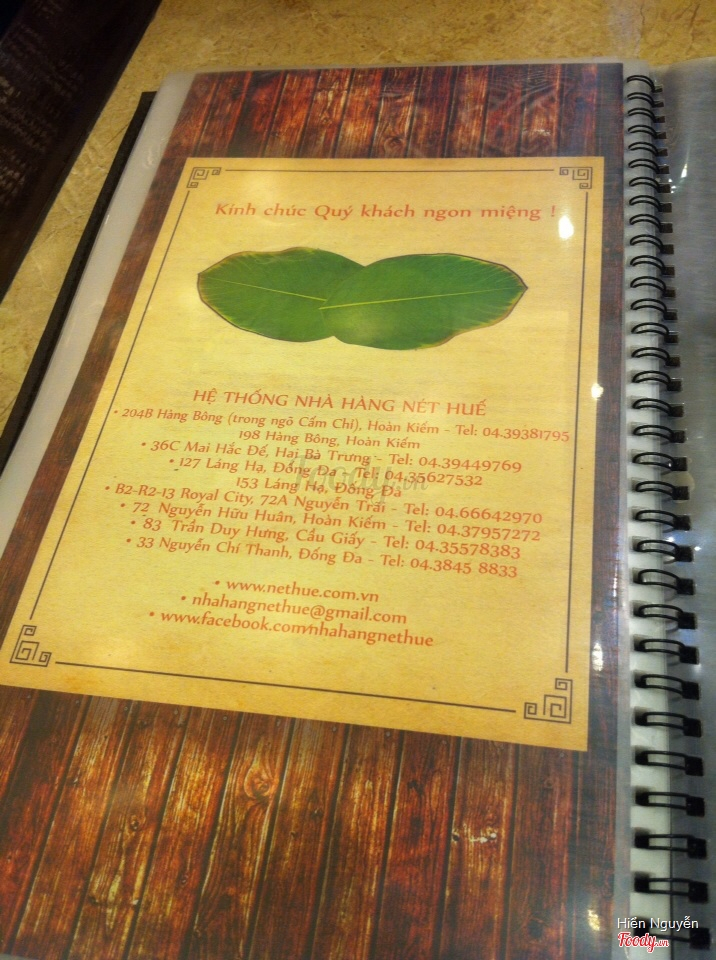 Kính chúc Quý khách ngon miệng !
HỆ THỐNG NHÀ HÀNG NÉT HUẾ
• 204B Hàng Bông (trong ngõ Cấm Chỉ), Hoàn Kiếm - Tel: 04.39381795
198 Hàng Bông, Hoàn Kiếm
• 36C Mai Hắc Đế, Hai Bà Trưng - Tel: 04.39449769
• 127 Láng Hạ, Đống Đa - Tel: 04.35627532
153 Láng Hạ, Đống Đa
• B2-R2-13 Royal City, 72A Nguyễn Trãi - Tel: 04.66642970
• 72 Nguyễn Hữu Huân, Hoàn Kiếm - Tel: 04.37957272
• 83 Trần Duy Hưng, Cầu Giấy - Tel: 04.35578383
• 33 Nguyễn Chí Thanh, Đống Đa - Tel: 04.3845 8833
• www.nethue.com.vn
• nhahangnethue@gmail.com
• www.facebook.com/nhahangnethue
Foody.vn
Hiển Nguyễn
Foody.vn